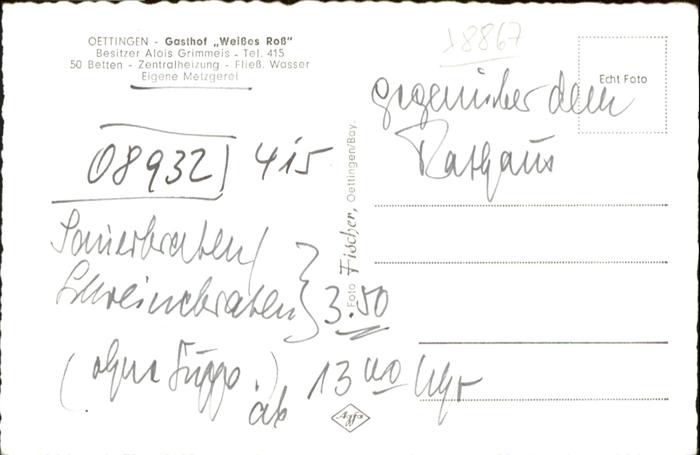 OETTINGEN - Gasthof „Weißes Roß"
Besitzer Alois Grimmeis - Tel. 415
50 Betten - Zentralheizung - Fließ. Wasser
Eigene Metzgerei
18867
Echt Foto
gegenüber dem
Rathaus
08932/415
Sauerbraten/
Schweinebraten } 3.50
(ohne Suppe.)
ab 13 00 Uhr
Foto Fischer, Oettingen/Bay.
Agfa